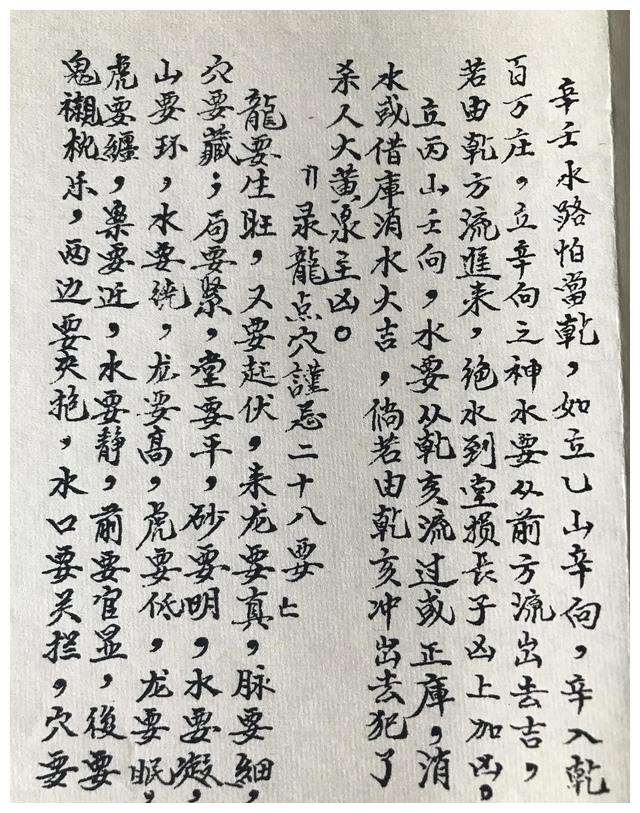 辛壬水路怕當乾，如立乙山辛向，辛入乾
百万庄，立辛向之神水要从前方流出去吉，
若由乾方流進来，绝水到堂损長子凶上加凶。
立丙山壬向，水要从乾亥流过或正庫，消
水或借庫消水大吉，倘若由乾亥冲出去犯了
杀人大黄泉主凶。
尋龍点穴謹忌二十八要
龍要生旺，又要起伏，来龙要真，脉要細，
穴要藏；局要紧，堂要平，砂要明，水要凝，
山要环，水要绕，龙要高，虎要低，龙要眠，
虎要缠，案要近，水要静，前要官显，後要
鬼襯枕乐，两边要夾抱，水口要关拦，穴要